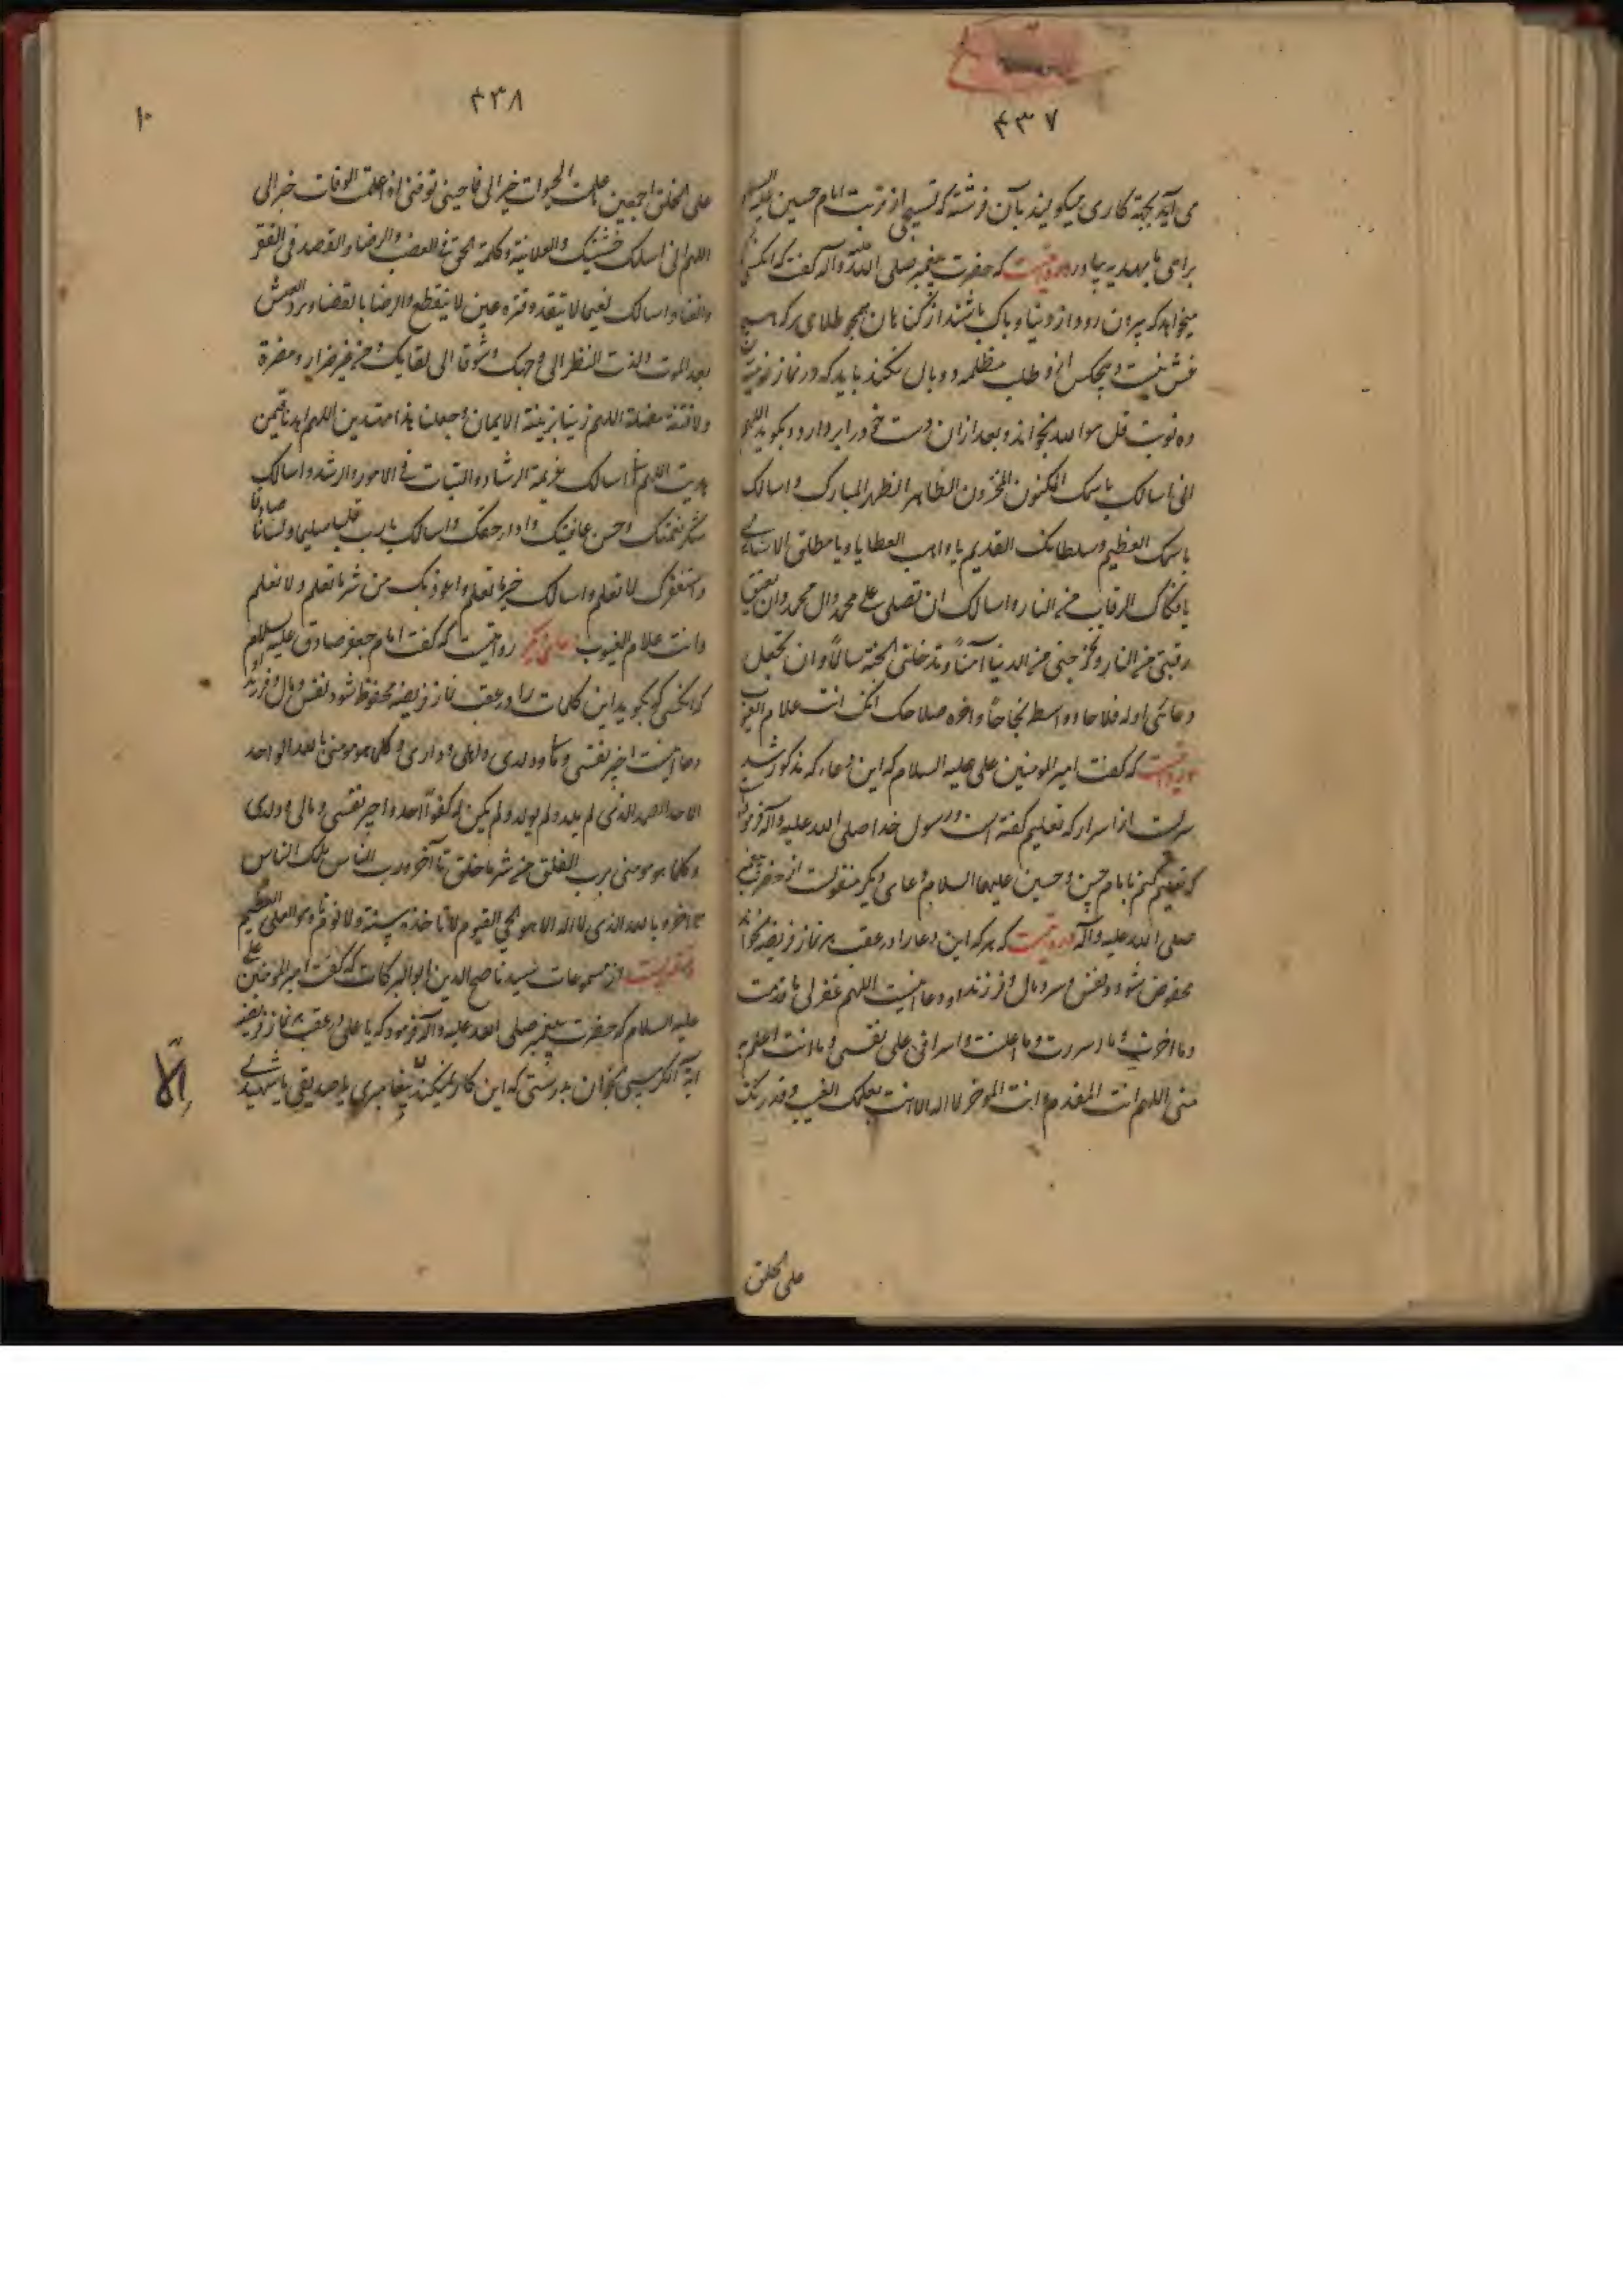 ۴۳۷
می آید بجهة کاری میکویند بآن فرشته که تسبیحی از تربت امام حسین علیه السلام
برای ما بهدیه بیاور روایتست که حضرت پیغمبر صلی الله علیه وآله گفت که انکس که
میخواهد که بیرون رود از دنیا و پاک باشد از کناهان همچو طلای که هیچ
غش نیست و هیچکس از و طلب مظلمه و وبال نکند باید که در نماز
ده نوبت قل هو الله بخواند و بعد از ان دست خود را بردارد و بکوید اللهم
انی اسالک باسمک المکنون المخزون الطاهر الطهر المبارک و اسالک
باسمک العظیم و سلطانک القدیم یا واهب العطایا و یا مطلق الاساری
یا فکاک الرقاب من النار اسالک ان تصلی علی محمد وال محمد وان تعتق
رقبتی من النار وتخرجنی من الدنیا آمناً وتدخلنی الجنة سالماً وان تجعل
دعائی اوله فلاحا و اوسطه نجاحاً واخره صلاحا انک انت علام الغیوب
روایتست که گفت امیر المومنین علی علیه السلام که این دعا که مذکور شد
سریست از اسرار که تعلیم کفته است رسول خدا صلی الله علیه وآله و فرمود
که تعلیم کنم بامام حسن و حسین علیهما السلام دعای دیکر منقولست از حضرت پیغمبر
صلی الله علیه وآله روایتست که هر که این دعا را در عقب هر نماز فریضه بخواند
محفوض شود نفس و سر و مال و فرزند او دعا اینست اللهم غفر لی ما قدمت
وما اخرت وما اسررت وما اعلنت واسرافی علی نفسی وما انت اعلم به
منی اللهم انت المقدم وانت الموخر لا اله الا انت بعلمک الغیب وقدرتک
علی الخلق
۴۳۸
۱۰
علی الخلق اجمعین علمت الحیوات خیر الی فاحینی توفنی اذا علمت الوفات خیر الی
اللهم انی اسالک خشیتک والعلانیة وکلمة الحق فی الغضب والرضا والقصد فی الفقر
والغنا واسالک نعیما لا ینفد وقرة عین لا ینقطع والرضا بالقضا وبرد العیش
بعد الموت ولذت النظر الی وجهک وشوقا الی لقایک من غیر ضرار ومضرة
ولا فتنة مضلة اللهم زینا بزینة الایمان وجعلنا هداة مهتدین اللهم اهدنا فیمن
هدیت اللهم انی اسالک عزیمة الرشاد والثبات فی الامور والرشد واسالک
شکر نعمتک وحسن عافیتک وادا حقک واسالک یا رب قلبا سلیما ولسانا صادقا
واستغفرک لا تعلم واسالک خیر ما تعلم واعوذ بک من شر ما تعلم ولا نعلم
وانت علام الغیوب دعای دیکر روایتست که گفت امام جعفر صادق علیه السلام
که انکس که بکوید این کلمات را در عقب نماز فریضه محفوظ شود نفس و مال و فرزند او
دعا اینست اجیر نفسی و مالی و ولدی و اهلی و داری و کلما هو منی بالله الواحد
الاحد الصمد الذی لم یلد ولم یولد ولم یکن له کفواً احد و اجیر نفسی و مالی و ولدی
و کلما هو منی برب الفلق من شر ما خلق تا آخر و رب الناس ملک الناس
تا اخر و بالله الذی لا اله الا هو الحی القیوم لا تاخذه سنة ولا نوم تا و هو العلی العظیم
منقولست از مسموعات سید ناصح الدین ابو البرکات که گفت امیر المومنین علی
علیه السلام که حضرت پیغمبر صلی الله علیه وآله فرمود که یا علی در عقب هر نماز فریضه
ایة الکرسی بخوان بدرستی که این کار نمیکند پیغامبری یا صدیقی یا شهیدی
اِلّا